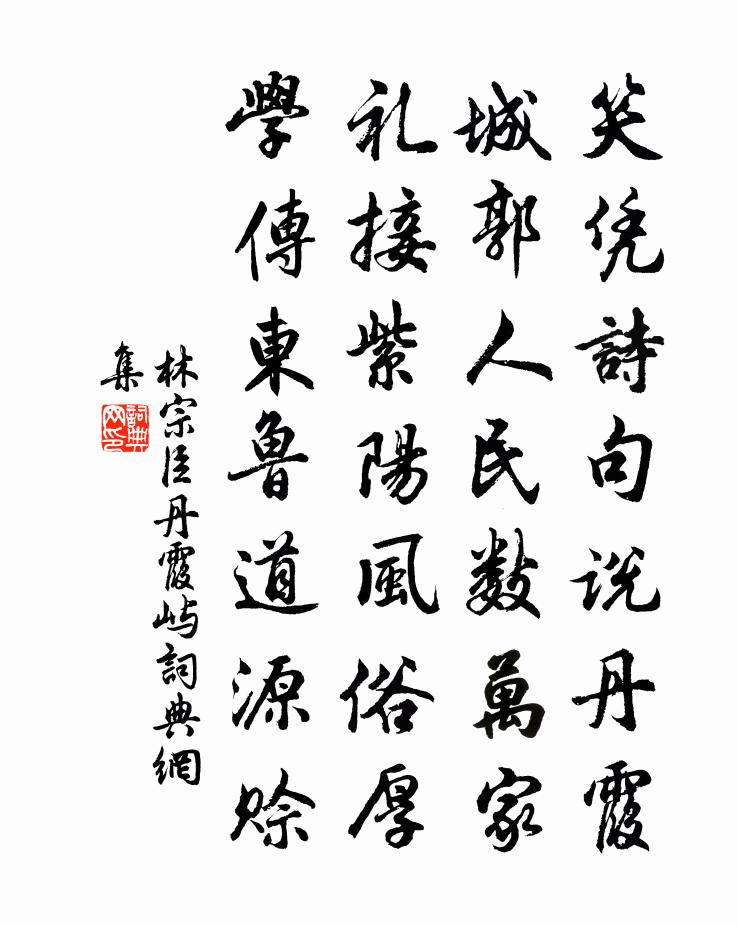 笑凭詩句説丹霞
城郭人民数萬家
礼接紫陽風俗厚
學傳東魯道源賒
林宗臣丹霞嶼詞典網
集
詞典
网印